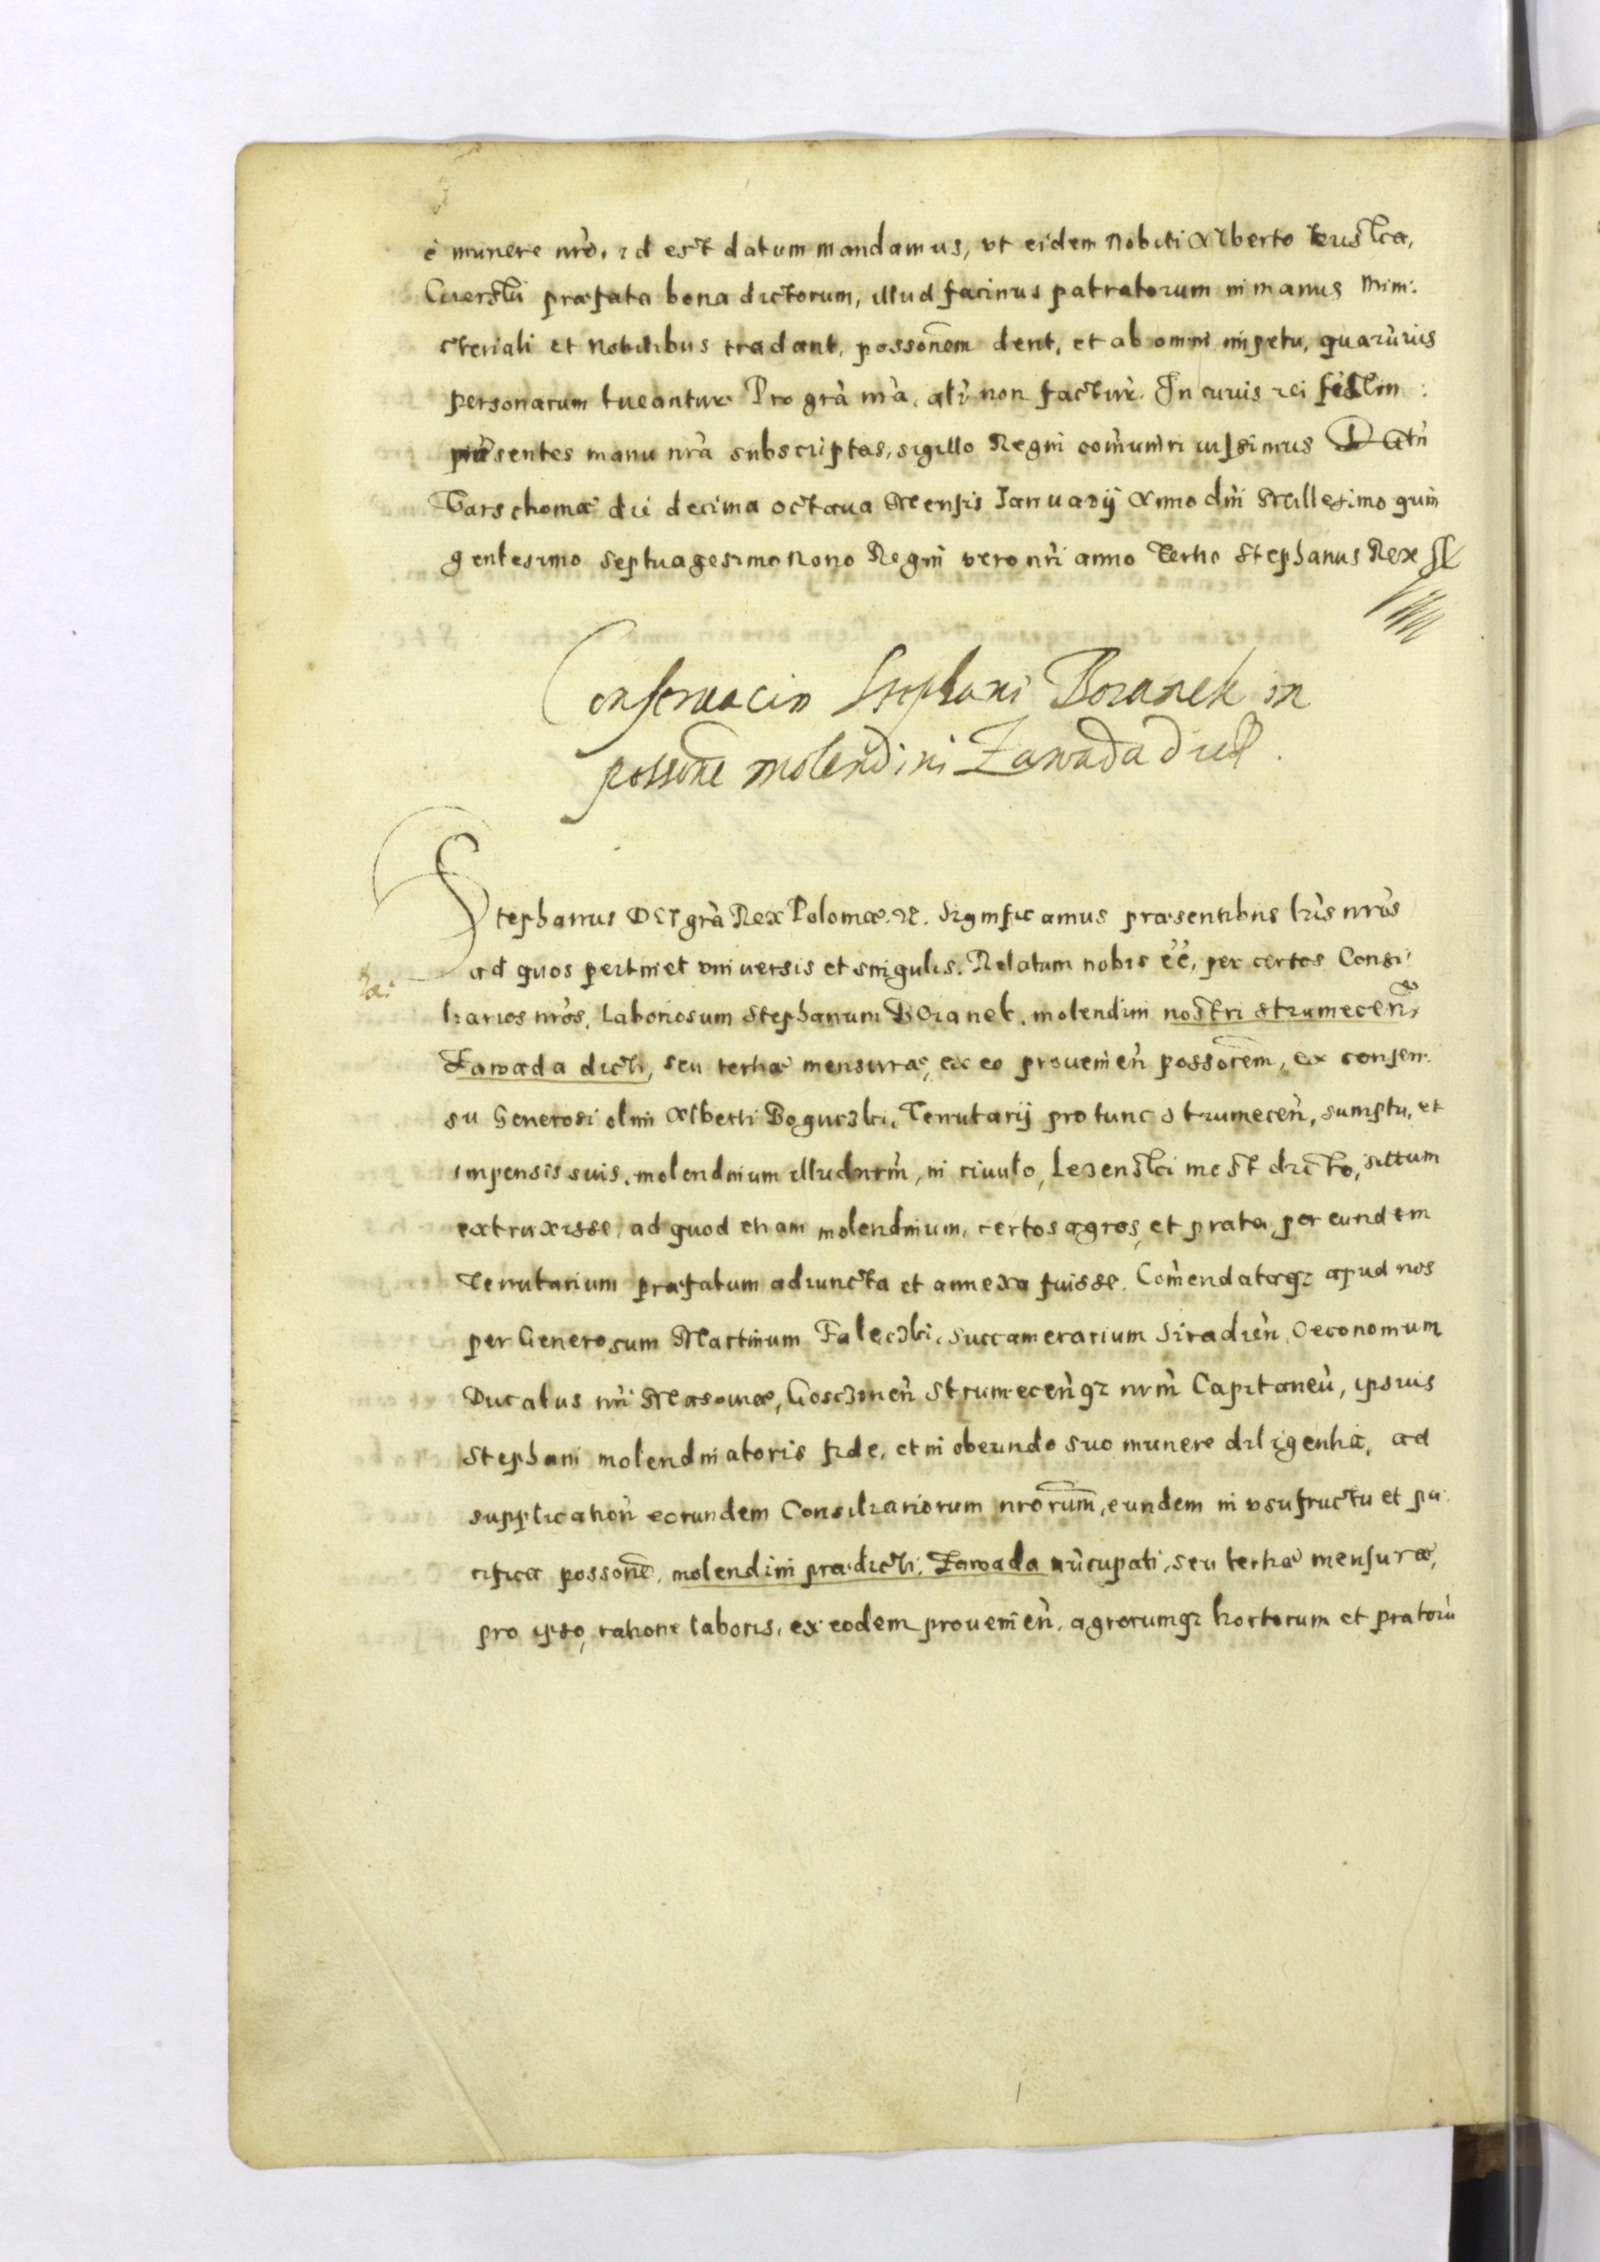 e munere nrõ, id est datum mandamus, vt eidem Nobili Alberto
præfata bona dictorum, illud facinus patratorum in manus Mini:
steriali et Nobilibus tradant, possonem dent, et ab omni impetu, quarũvis
personarum tueantur Pro grã nrã, alr̃ non factur̃. In cuius rei fidem
præsentes manu nrã subscriptas, sigillo Regni com̃uniri iussimus Datũ
Varschouiæ die decima octaua Mensis Ianuarij Anno dñi Millesimo quin
gentesimo septuagesimo Nono Regni vero nr̃i anno Tertio Stephanus Rex ss
Conseruacio Stephani Boranek in
possone molendini Zawada dict
Stephanus Dei grã Rex Poloniæ. Significamus præsentibus lr̃is nrĩs
ad quos pertinet vniuersis et singulis. Relatum nobis eẽ, per certos Consi
liarios nrõs, Laboriosum Stephanum Boranek, molendini nostri Strumecen̄
Zawada dicti, seu tertiæ mensuræ, ex eo prouenien̄ possorem, ex consen
su Generosi olim Alberti Boguczki, Tenutarij pro tunc strumecen̄, sumptu, et
impensis suis, molendinum illud nrm̃, in riuulo, dicto, situm
extruxisse, ad quod etiam molendinum, certos agros, et prata, per eundem
Tenutarium præfatum adiuncta et annexa fuisse. Com̃endataqꝫ apud nos
per Generosum Martinum Faleczki, Succamerarium Siradien̄, Oeconomum
Ducatus nr̃i Masouiæ, Gosczinen̄ Strumecen̄qꝫ nrm̃ Capitaneũ, ipsius
Stephani molendinatoris fide, et in obeundo suo munere diligentia, ad
supplication̄ eorundem Consiliariorum nrorum, eundem in vsufructu et pa
cifica possone, molendini prædicti, Zawada nũcupati, seu tertiæ mensuræ,
pro ipso, ratione laboris, ex eodem prouenien̄, agrorumqꝫ hortorum et pratorũ